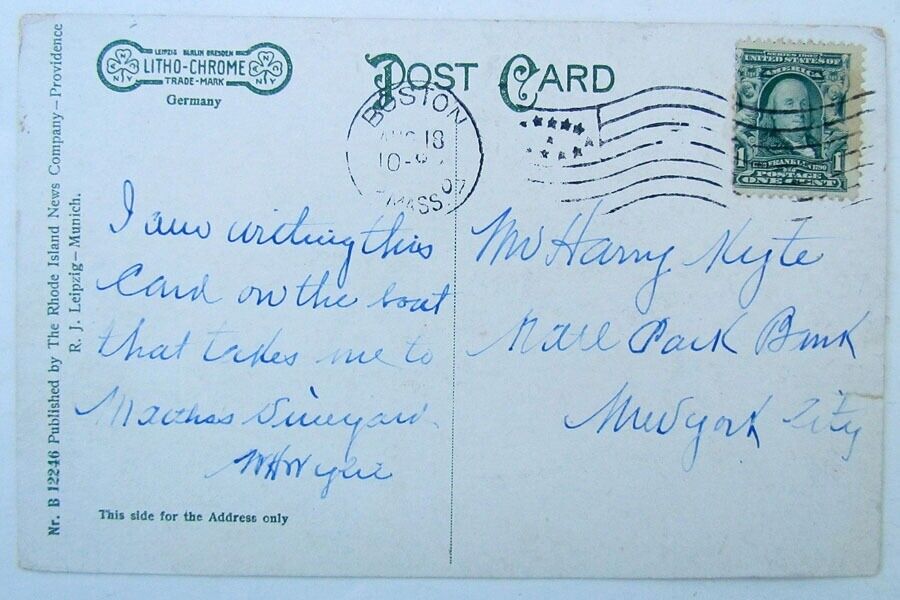 LEIPZIG BERLIN DRESDEN
LITHO-CHROME
TRADE-MARK
Germany
POST CARD
BOSTON
AUG 18
10-
07
MASS.
SERIES 1902
UNITED STATES OF
AMERICA
1 FRANKLIN 1
POSTAGE
ONE CENT
I am writing this
Card on the boat
that takes me to
Marthas Vineyard.
WHWylie
Mr Harry Kyte
Natl Park Bank
New York City
This side for the Address only
Nr. B 12246 Published by The Rhode Island News Company—Providence
R. J. Leipzig—Munich.